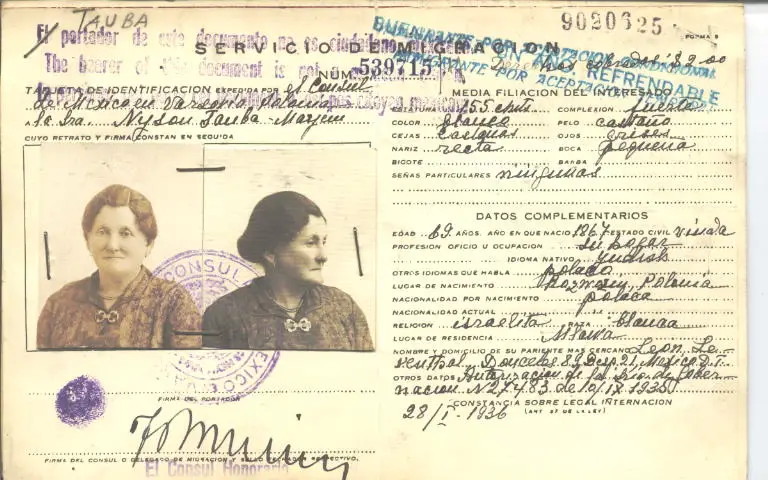 TAUBA
9020625
FORMA 5
SERVICIO DE MIGRACION
El portador de este documento no es ciudadano
The bearer of this document is not
BUEN
POR
INMIGRANTE POR ACEPTA
REFRENDABLE
Derechos cobrados $2.00
NÚM. 539715
TARJETA DE IDENTIFICACION EXPEDIDA POR el Consul
de Mexico en Varsovia, Polonia
a la Sra. Nyson Tauba-Maryem
CUYO RETRATO Y FIRMA CONSTAN EN SEGUIDA
MEDIA FILIACION DEL INTERESADO
ESTATURA 155 cmts COMPLEXION fuerte
COLOR blanco PELO castaño
CEJAS OJOS grises
NARIZ recta BOCA pequeña
BIGOTE BARBA
SEÑAS PARTICULARES ningunas
DATOS COMPLEMENTARIOS
EDAD 69 AÑOS. AÑO EN QUE NACIO 1867 ESTADO CIVIL viuda
PROFESION OFICIO U OCUPACION su hogar
IDIOMA NATIVO yudish
OTROS IDIOMAS QUE HABLA polaco
LUGAR DE NACIMIENTO Polonia
NACIONALIDAD POR NACIMIENTO polaca
NACIONALIDAD ACTUAL
RELIGION israelita RAZA blanca
LUGAR DE RESIDENCIA Mlawa
NOMBRE Y DOMICILIO DE SU PARIENTE MAS CERCANO Leon Le-
venthal. Donceles 89, Desp. 21, Mexico D.F.
OTROS DATOS Autorizacion de la Sria. de Gober-
nacion. N 27483 de
CONSTANCIA SOBRE LEGAL INTERNACION
(ART 57 DE LA LEY)
28/I-1936
CONSUL
MEXICO EN
FIRMA DEL PORTADOR
FIRMA DEL CONSUL O DELEGADO DE MIGRACION Y SELLO RESPECTIVO.
El Consul Honorario